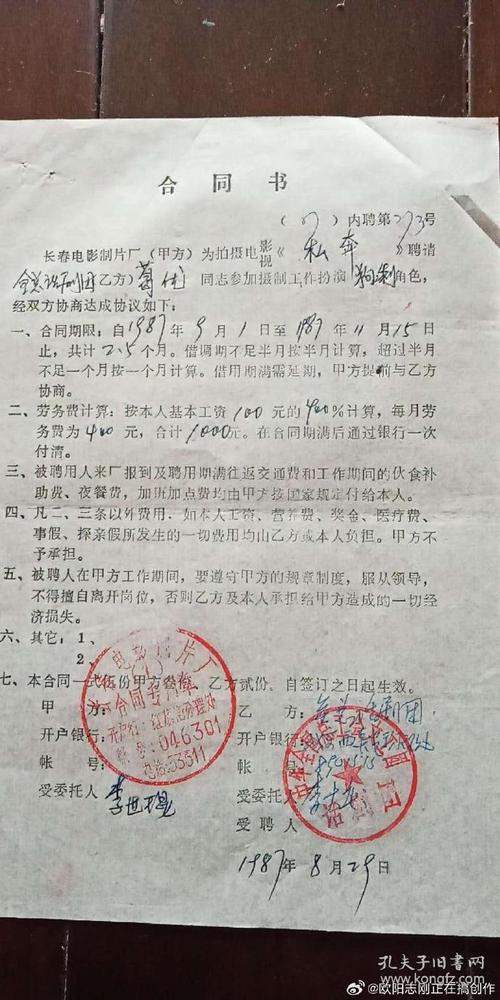 合同书
(87)内聘第273号
长春电影制片厂（甲方）为拍摄电影视《私奔》聘请
全总话剧团乙方）葛优同志参加摄制工作扮演 角色，
经双方协商达成协议如下：
一、合同期限：自1987年9月1日至1987年11月15日
止，共计2.5个月。借调期不足半月按半月计算，超过半月
不足一个月按一个月计算。借用期满需延期，甲方提前与乙方
协商。
二、劳务费计算：按本人基本工资100元的400%计算，每月劳
务费为400元，合计1000元。在合同期满后通过银行一次
付清。
三、被聘用人来厂报到及聘用期满往返交通费和工作期间的伙食补
助费、夜餐费，加班加点费均由甲方按国家规定付给本人。
四、凡二、三条以外费用．如本人工资、营养费、奖金、医疗费、
事假、探亲假所发生的一切费用均由乙方或本人负担。甲方不
予承担。
五、被聘人在甲方工作期间，要遵守甲方的规章制度，服从领导，
不得擅自离开岗位，否则乙方及本人承担给甲方造成的一切经
济损失。
六、其它：1、
2、
七、本合同一式伍份甲方叁份，乙方贰份。自签订之日起生效。
甲方：
乙方：全总话剧团
开户银行：
开户银行：
帐号：
帐号：
受委托人：
受委托人：
受聘人：
1987年8月29日
电影制片厂
合同专用章
开户行：红旗街分理处
帐号：046301
电话：53511
话剧团
孔夫子旧书网
www.kongfz.com
@欧阳志刚正在搞创作